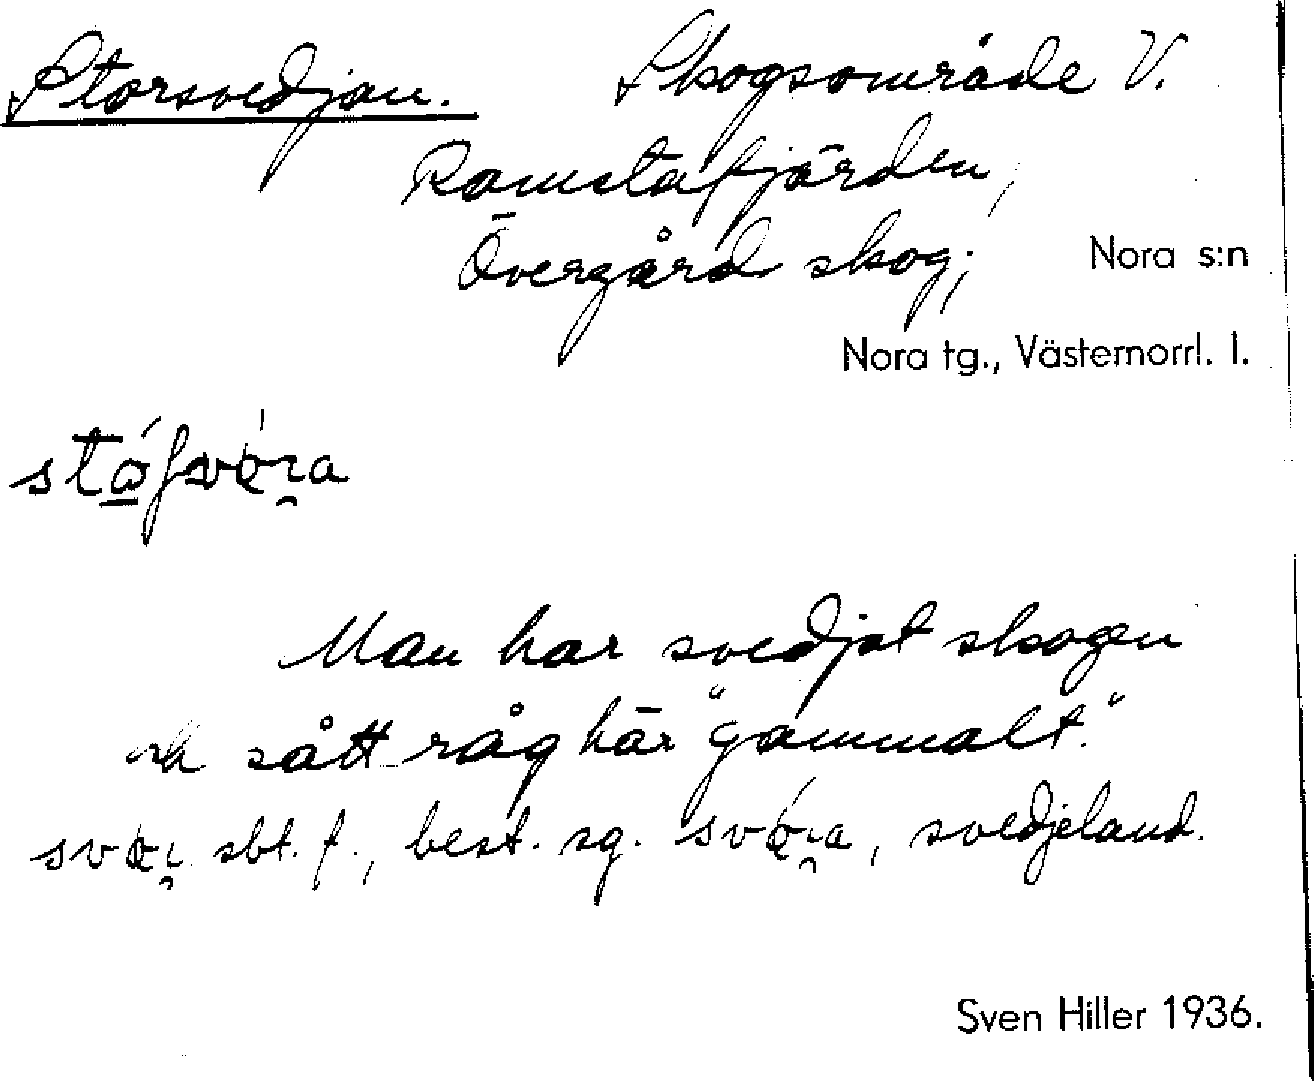 Storsvedjan. Skogsområde V.
Ramstafjärden,
Övergård skog;
Nora s:n
Nora tg., Västernorrl. l.
Man har svedjat skogen
och sått råg här "gammalt."
sbt. f., best. sg. , svedjeland.
Sven Hiller 1936.